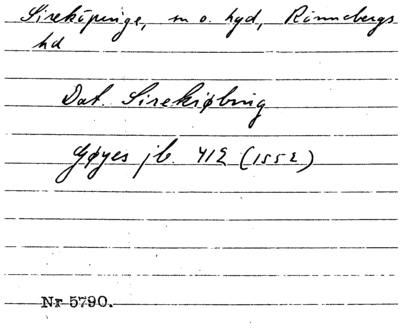 Sireköpinge, m o. hgd, Rönnebergs
hd
Dat. Sirekiøbing
Gøyes jb. 412 (1552)
Nr 5790.